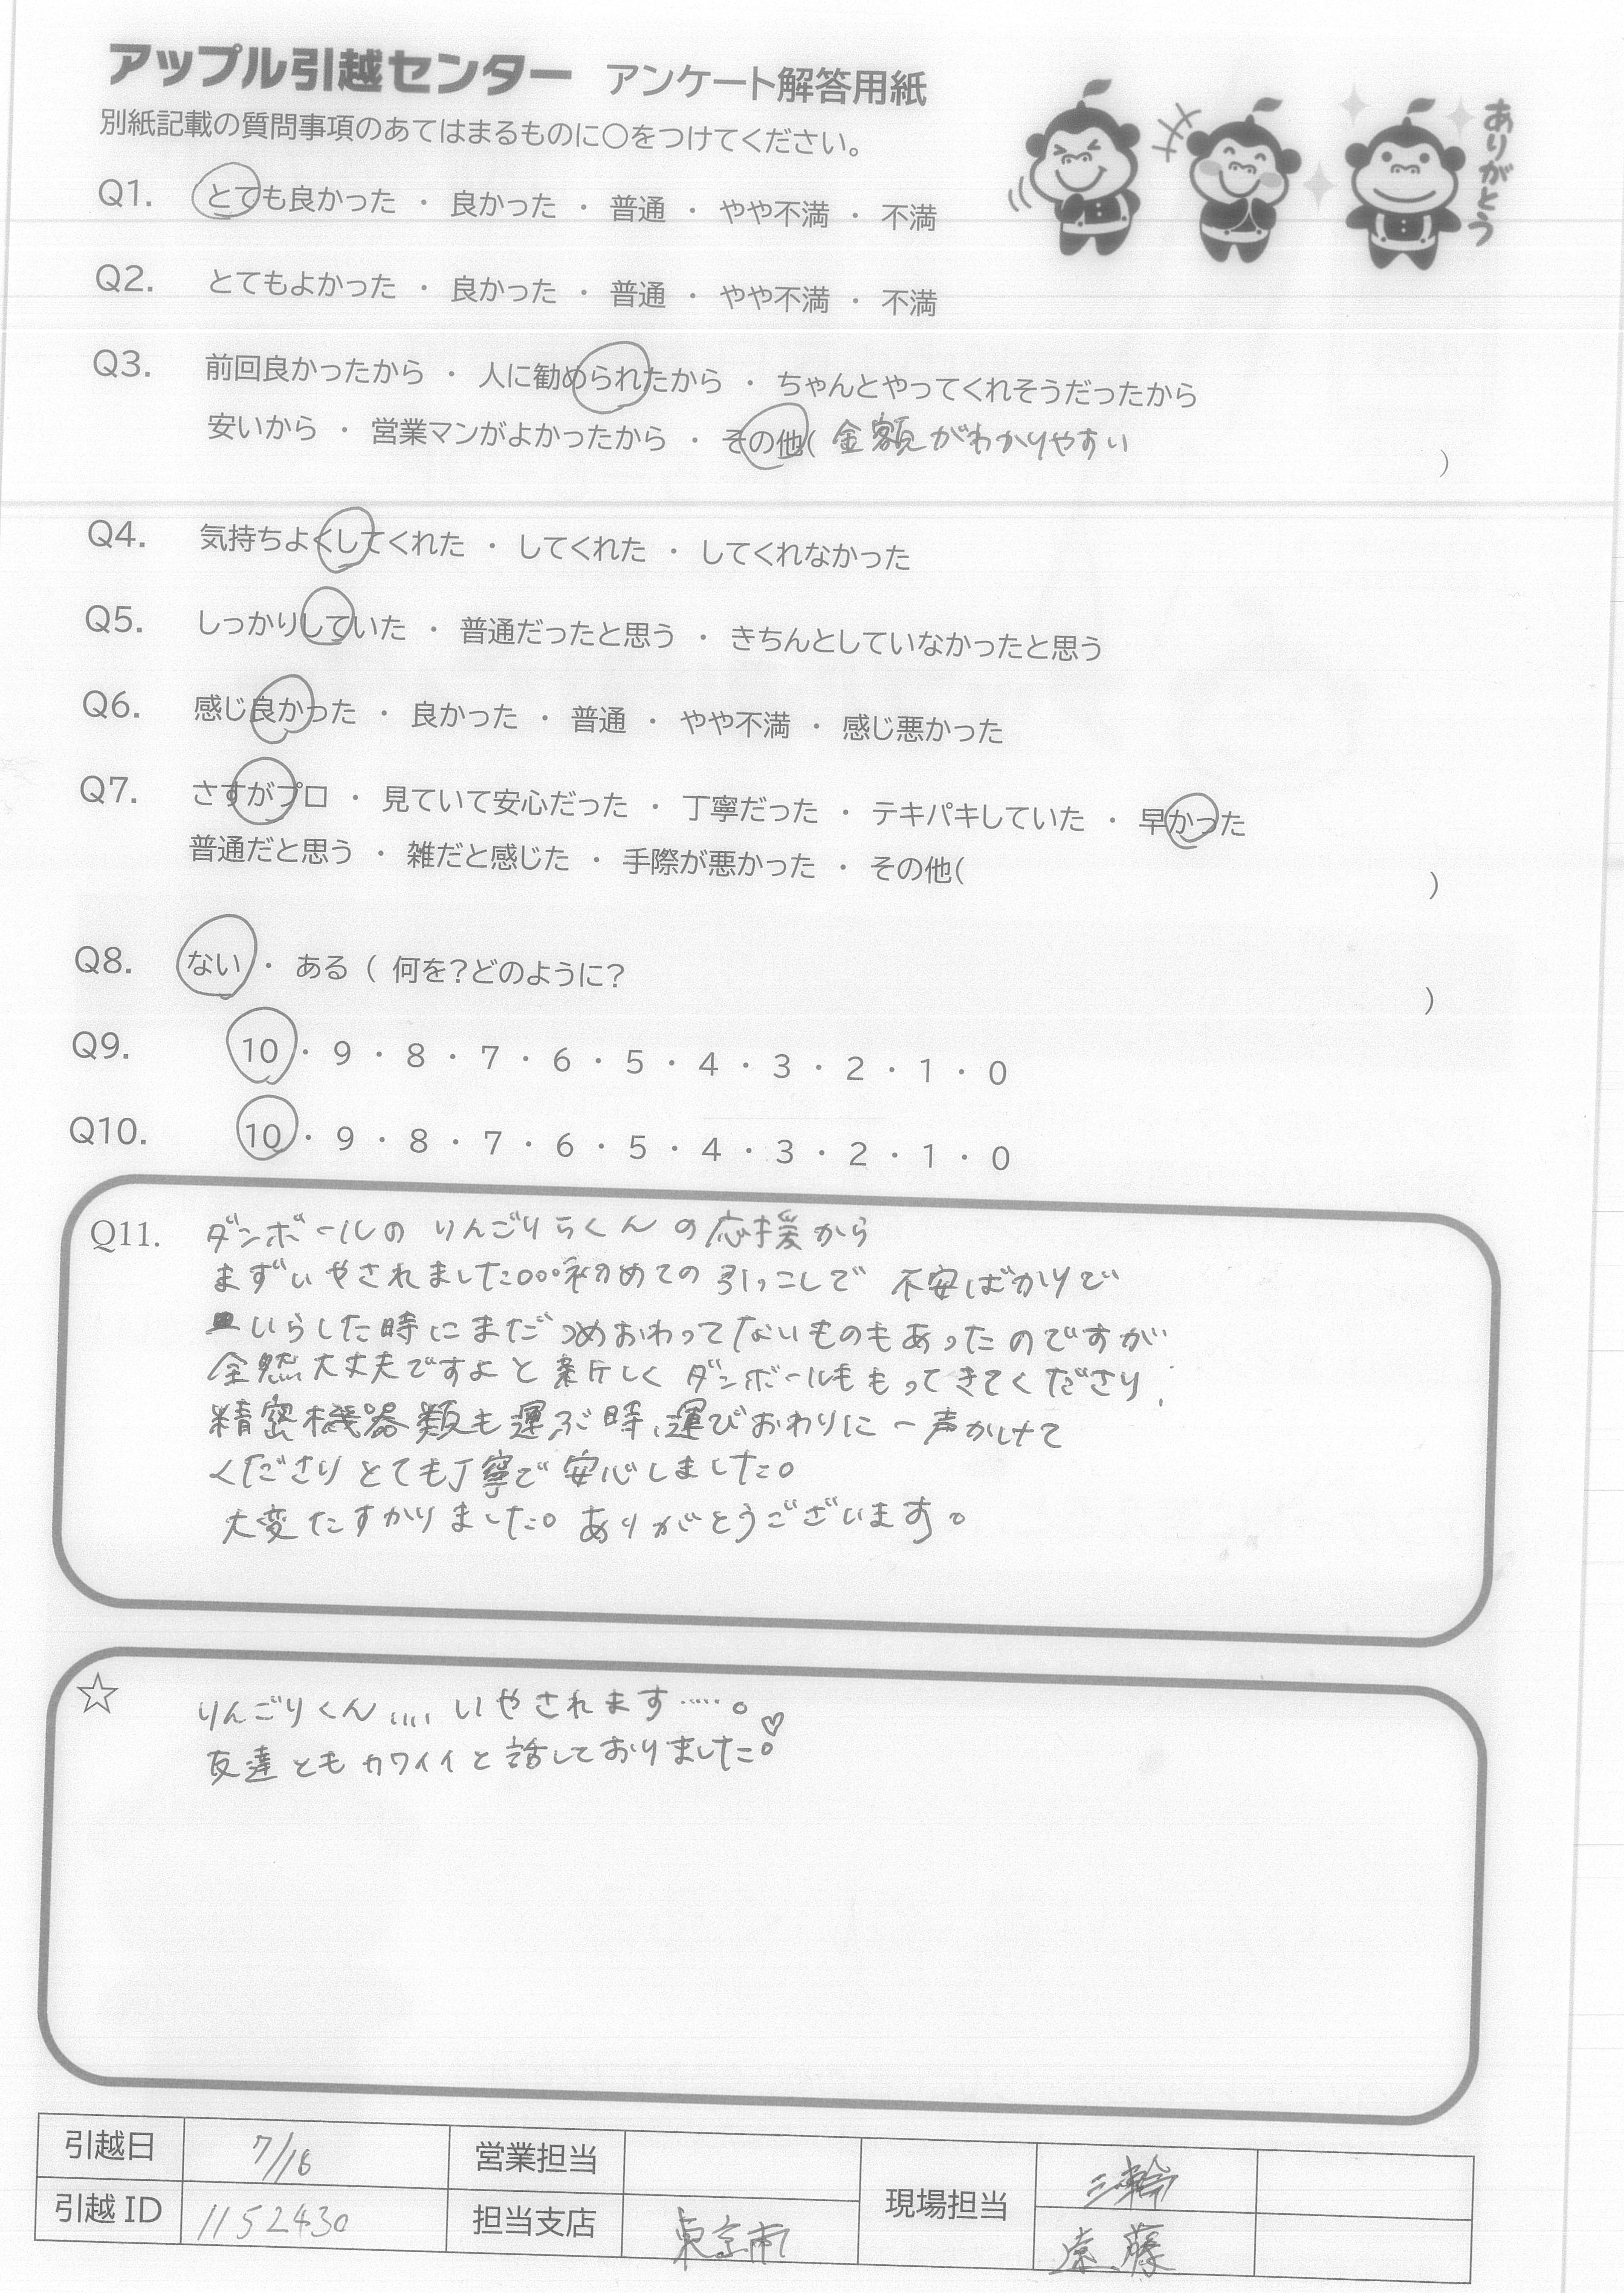 アップル引越センター アンケート解答用紙
別紙記載の質問事項のあてはまるものに〇をつけてください。
ありがとう
Q1. とても良かった ・ 良かった ・ 普通 ・ やや不満 ・ 不満
Q2. とてもよかった ・ 良かった ・ 普通 ・ やや不満 ・ 不満
Q3. 前回良かったから ・ 人に勧められたから ・ ちゃんとやってくれそうだったから
安いから ・ 営業マンがよかったから ・ その他( 金額がわかりやすい )
Q4. 気持ちよくしてくれた ・ してくれた ・ してくれなかった
Q5. しっかりしていた ・ 普通だったと思う ・ きちんとしていなかったと思う
Q6. 感じ良かった ・ 良かった ・ 普通 ・ やや不満 ・ 感じ悪かった
Q7. さすがプロ ・ 見ていて安心だった ・ 丁寧だった ・ テキパキしていた ・ 早かった
普通だと思う ・ 雑だと感じた ・ 手際が悪かった ・ その他( )
Q8. ない ・ ある ( 何を?どのように? )
Q9. 10 ・ 9 ・ 8 ・ 7 ・ 6 ・ 5 ・ 4 ・ 3 ・ 2 ・ 1 ・ 0
Q10. 10 ・ 9 ・ 8 ・ 7 ・ 6 ・ 5 ・ 4 ・ 3 ・ 2 ・ 1 ・ 0
Q11. ダンボールの りんごりらくん の応援から
まずいやされました。。。初めての引っこしで 不安ばかりで
いらした時にまだつめおわってないものもあったのですが
全然大丈夫ですよと新しくダンボールももってきてくださり、
精密機器類も運ぶ時、運びおわりに一声かけて
くださりとても丁寧で安心しました。
大変たすかりました。ありがとうございます。
☆ りんごりくん....いやされます.....。
友達ともカワイイと話しておりました。♡
引越日 7/18 営業担当 現場担当 三輪
引越ID 1152430 担当支店 東京南 遠藤